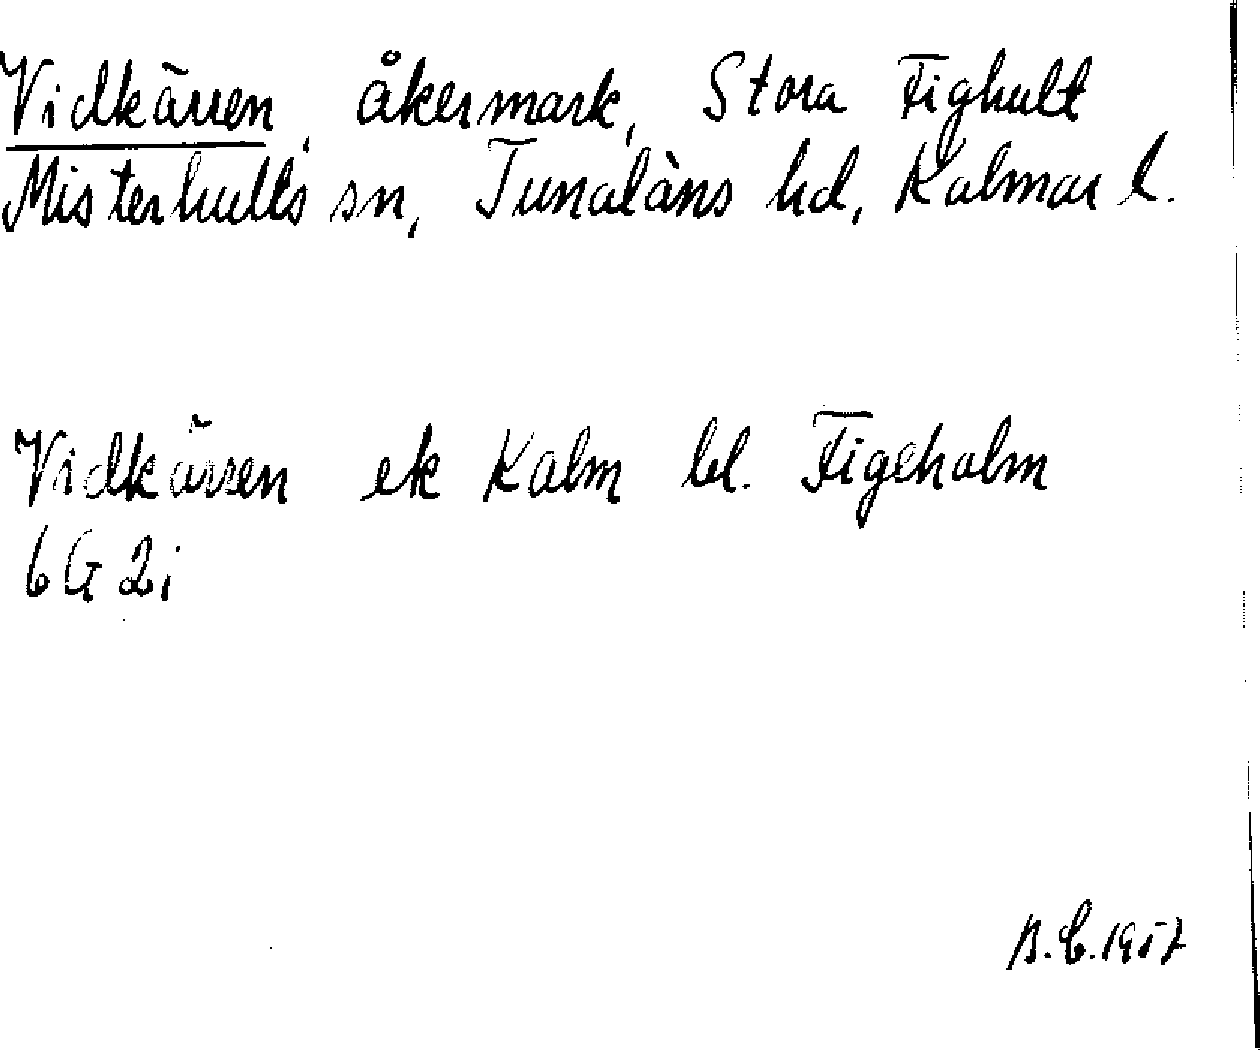 Vidkärren, åkermark, Stora Fighult
Misterhults sn, Tunaläns hd, Kalmar l.
Vidkärren ek Kalm bl. Figeholm
6G 2i
B.C. 1957